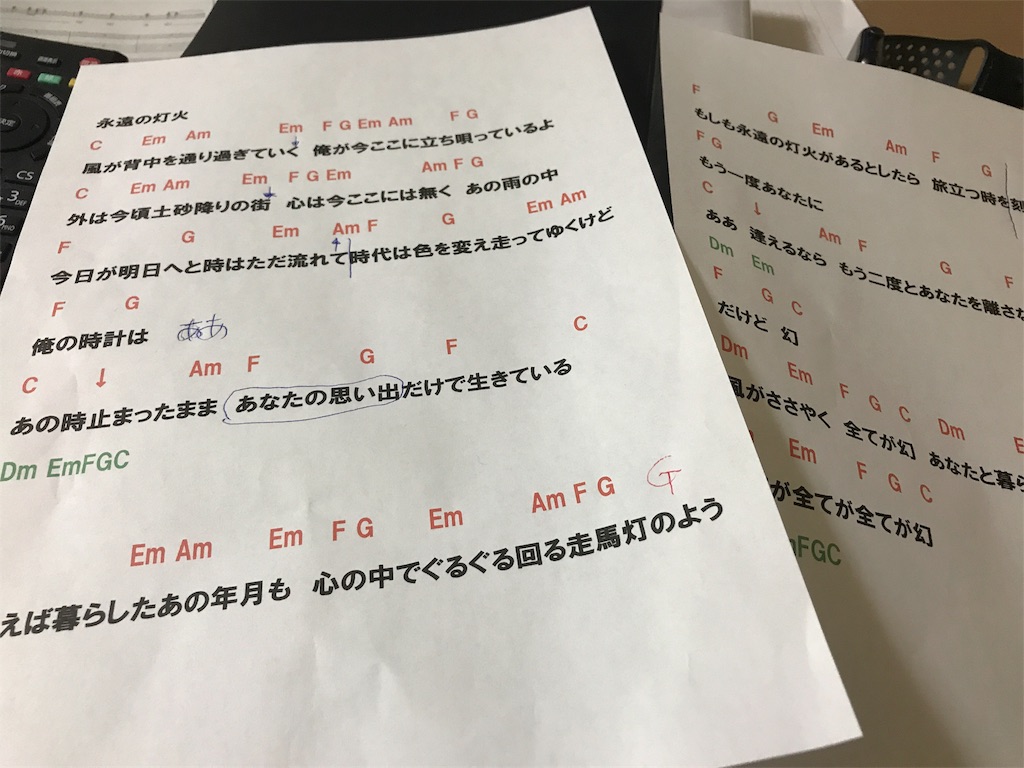 永遠の灯火
C Em Am Em F G Em Am F G
風が背中を通り過ぎていく 俺が今ここに立ち唄っているよ
C Em Am Em F G Em Am F G
外は今頃土砂降りの街 心は今ここには無く あの雨の中
F G Em Am F G Em Am
今日が明日へと時はただ流れて 時代は色を変え走ってゆくけど
F G
俺の時計は
C ↓ Am F G F C
あの時止まったまま あなたの思い出だけで生きている
Dm EmFGC
Em Am Em F G Em Am F G G
えば暮らしたあの年月も 心の中でぐるぐる回る走馬灯のよう
F G Em Am F G
もしも永遠の灯火があるとしたら 旅立つ時を刻
F G
もう一度あなたに
C ↓ Am F G F
ああ 逢えるなら もう二度とあなたを離さな
Dm Em
F G C
だけど 幻
Dm Em F G C Dm E
風がささやく 全てが幻 あなたと暮ら
Em F G C
が全てが全てが幻
mFGC
CS
3
DEF
決定